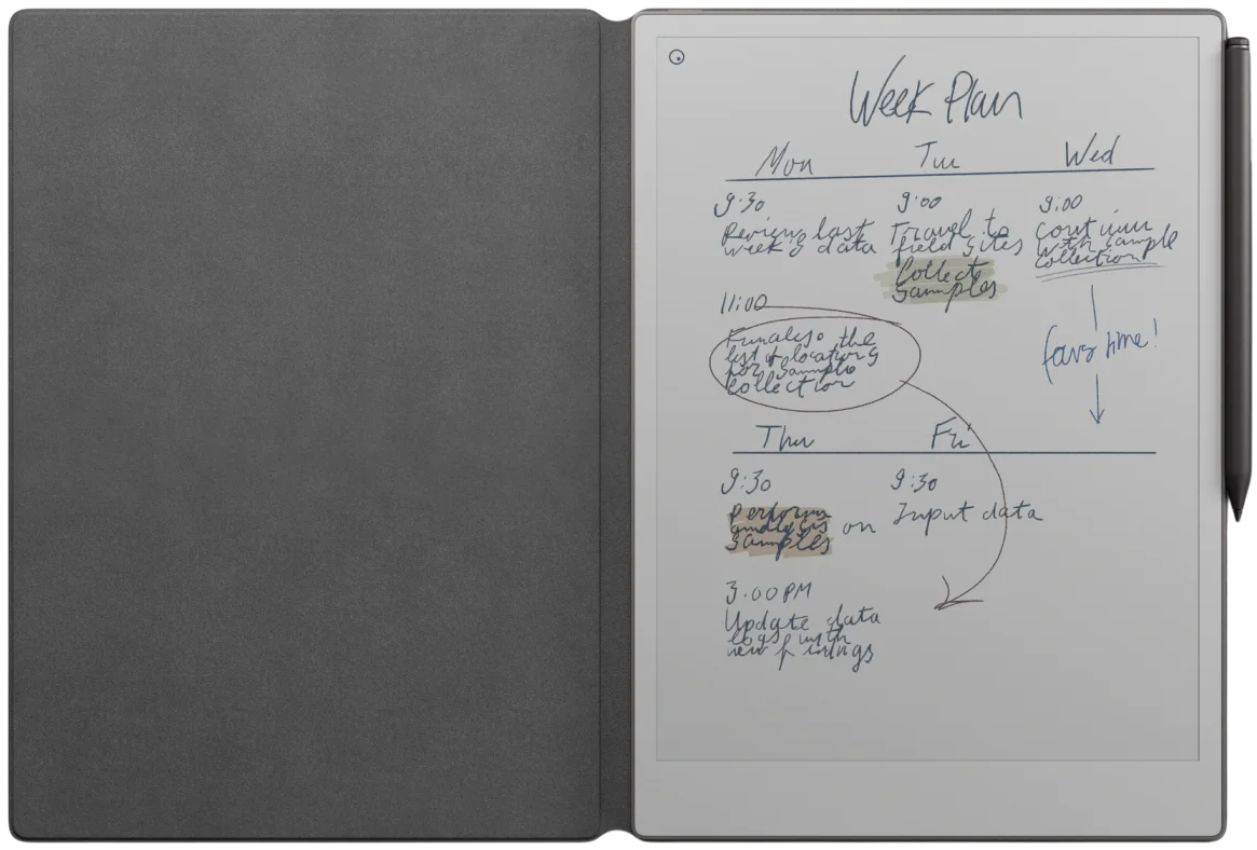 Week Plan
Mon Tue Wed
9:30
Review last
week's data
11:00
Finalise the
list of locations
for sample
collection
9:00
Travel to
field sites
Collect
samples
9:00
Continue
with sample
collection
time!
Thu Fri
9:30
Perform
analysis on
samples
3:00 PM
Update data
logs with
new findings
9:30
Input data